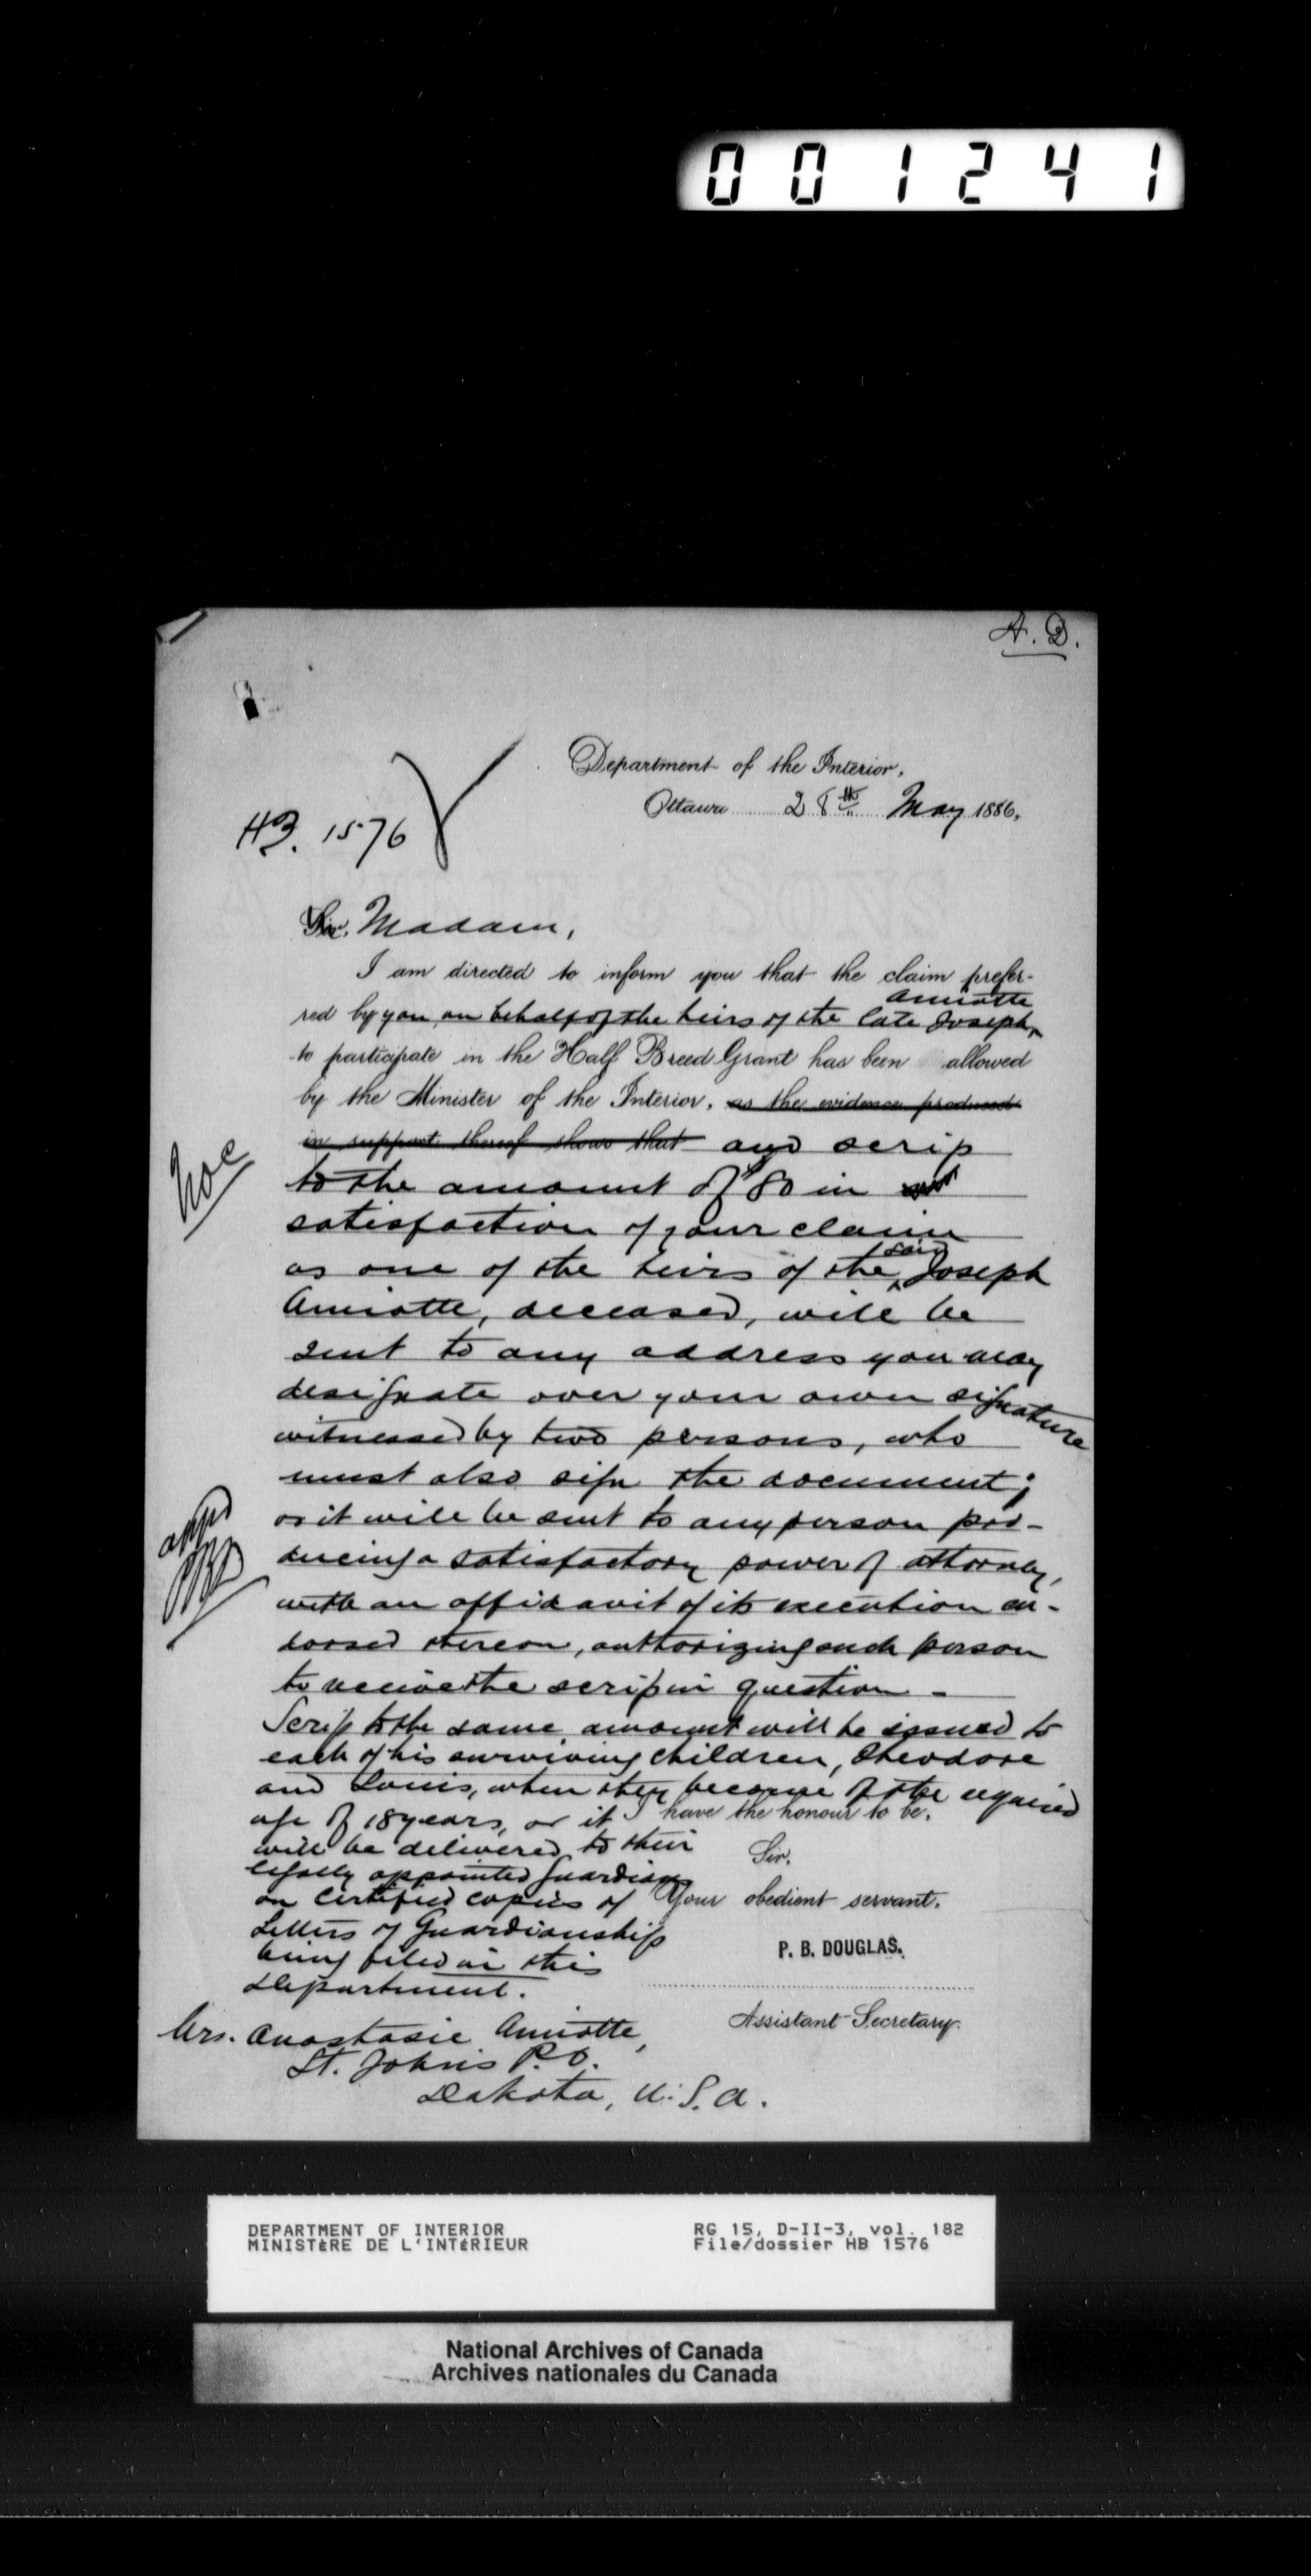 001241
A. D.
Department of the Interior,
Ottawa 28th May 1886.
HB. 1576
Sir, Madam,
I am directed to inform you that the claim prefer-
Amiotte
red by you on behalf of the heirs of the late Joseph
to participate in the Half Breed Grant has been allowed
by the Minister of the Interior, as the evidence produced
in support thereof shows that and scrip
to the amount of $80 in
satisfaction of your claim
said
as one of the heirs of the Joseph
Amiotte, deceased, will be
sent to any address you may
designate over your own signature
witnessed by two persons, who
must also sign the document;
or it will be sent to any person pro-
ducing a satisfactory power of attorney,
with an affidavit of its execution en-
dorsed thereon, authorizing such person
to receive the scrip in question -
Scrip to the same amount will be issued to
each of his surviving children, Theodore
and Louis, when they become of the required
age of 18 years, or it
will be delivered to their
legally appointed guardians
on certified copies of
Letters of Guardianship
being filed in this
Department.
I have the honour to be,
Sir,
Your obedient servant,
P. B. DOUGLAS.
Assistant Secretary.
Mrs. Anastasie Amiotte,
St. Johns P.O.
Dakota, U.S.A.
DEPARTMENT OF INTERIOR
MINISTÈRE DE L'INTÉRIEUR
RG 15, D-II-3, vol. 182
File/dossier HB 1576
National Archives of Canada
Archives nationales du Canada